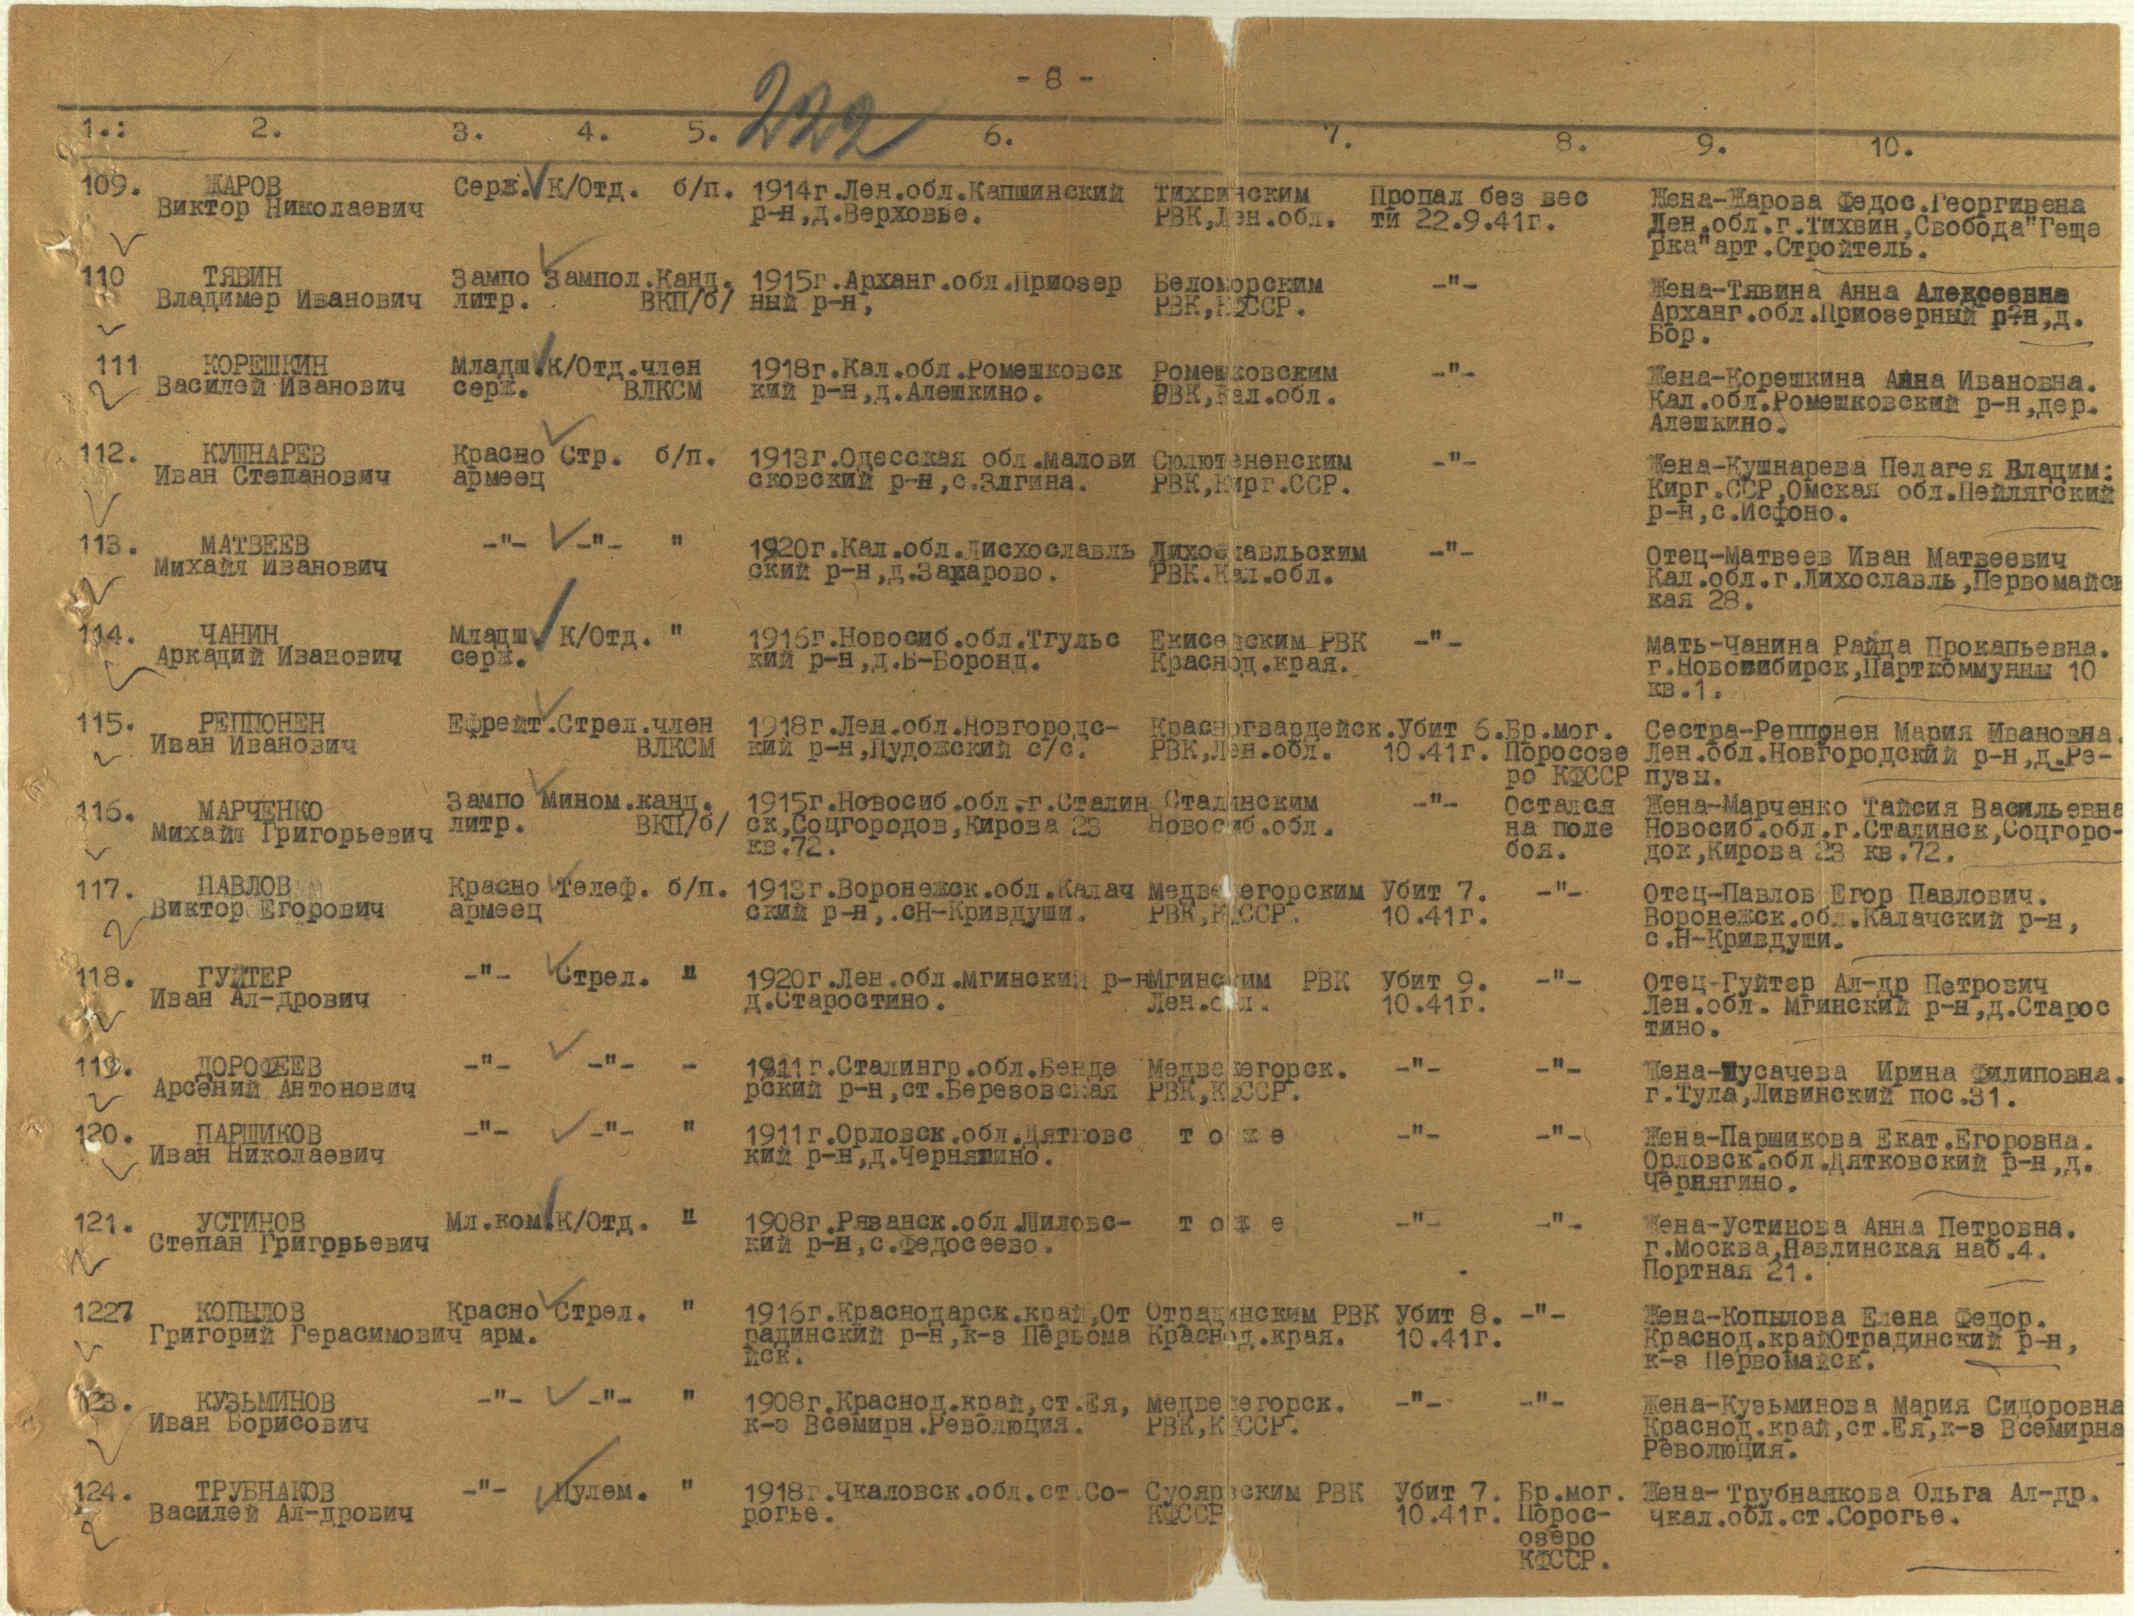 - 8 -
222
1.: 2. 3. 4. 5. 6. 7. 8. 9. 10.
109. ЖАРОВ Серж. К/Отд. б/п. 1914г.Лен.обл.Капшинский Тихвинским Пропал без вес Жена-Жарова Федос.Георгивена
Виктор Николаевич р-н,д.Верховье. РВК,Лен.обл. ти 22.9.41г. Лен.обл.г.Тихвин,Свобода"Геще
рка"арт.Стройтель.
110 ТЯВИН Зампо Зампол.Канд. 1915г.Арханг.обл.Приозер Беломорским -"- Жена-Тявина Анна Алексеевна
Владимер Иванович литр. ВКП/б/ ный р-н, РВК,КФССР. Арханг.обл.Приозерный р-н,д.
Бор.
111 КОРЕШКИН Младш К/Отд.член 1918г.Кал.обл.Ромешковск Ромешковским -"- Жена-Корешкина Анна Ивановна.
Василей Иванович серж. ВЛКСМ кий р-н,д.Алешкино. РВК,Кал.обл. Кал.обл.Ромешковский р-н,дер.
Алешкино.
112. КУШНАРЕВ Красно Стр. б/п. 1913г.Одесская обл.малови Сюлютененским -"- Жена-Кушнарева Пелагея Владим:
Иван Степанович армеец сковский р-н,с.Злгина. РВК,Кирг.ССР. Кирг.ССР,Омская обл.Пейлягский
р-н,с.Исфоно.
113. МАТВЕЕВ -"- -"- " 1920г.Кал.обл.Лисхославль Лихославльским -"- Отец-Матвеев Иван Матвеевич
Михайл Иванович ский р-н,д.Захарово. РВК.Кал.обл. Кал.обл.г.Лихославль,Первомайск
кая 28.
114. ЧАНИН Младш К/Отд. " 1916г.Новосиб.обл.Тгульс Екисейским РВК -"- мать-Чанина Райда Прокапьевна.
Аркадий Иванович серж. кий р-н,д.Б-Боронд. Краснод.края. г.Новосибирск,Парткоммунны 10
кв.1.
115. РЕППОНЕН Ефрейт.Стрел.член 1918г.Лен.обл.Новгородс- Красногвардейск.Убит 6.Бр.мог. Сестра-Реппонен Мария Ивановна.
Иван Иванович ВЛКСМ кий р-н,Пудожский с/с. РВК,Лен.обл. 10.41г. Поросозе Лен.обл.Новгородский р-н,д.Ре-
ро КФССР пузы.
116. МАРЧЕНКО Зампо Мином.канд. 1915г.Новосиб.обл.г.Сталин Сталинским -"- Остался Жена-Марченко Тайсия Васильевна
Михайл Григорьевич литр. ВКП/б/ ск,Соцгородов,Кирова 23 Новосиб.обл. на поле Новосиб.обл.г.Сталинск,Соцгоро-
кв.72. боя. док,Кирова 23 кв.72.
117. ПАВЛОВ Красно Телеф. б/п. 1913г.Воронежск.обл.Калач медвежегорским Убит 7. -"- Отец-Павлов Егор Павлович.
Виктор Егорович армеец ский р-н,.сН-Кривдуши. РВК,КФССР. 10.41г. Воронежск.обл.Калачский р-н,
с.Н-Кривдуши.
118. ГУЙТЕР -"- Стрел. " 1920г.Лен.обл.мгинский р-нМгинским РВК Убит 9. -"- Отец-Гуйтер Ал-др Петрович
Иван Ал-дрович д.Старостино. Лен.обл. 10.41г. Лен.обл. мгинский р-н,д.Старос
тино.
119. ДОРОФЕЕВ -"- -"- - 1911г.Сталингр.обл.Бенде Медвежегорск. -"- -"- Жена-Шусачева Ирина Филиповна.
Арсений Антонович рский р-н,ст.Березовская РВК,КФССР. г.Тула,Ливинский пос.31.
120. ПАРШИКОВ -"- -"- " 1911г.Орловск.обл.Дятковс т о ж е -"- -"- Жена-Паршикова Екат.Егоровна.
Иван Николаевич кий р-н,д.Черняшино. Орловск.обл.Дятковский р-н,д.
Чернягино.
121. УСТИНОВ Мл.ком.К/Отд. " 1908г.Рязанск.обл.Шиловс- т о ж е -"- -"- Жена-Устинова Анна Петровна.
Степан Григорьевич кий р-н,с.Федосеево. г.Москва,Навлинская наб.4.
Портная 21.
1227 КОПЫЛОВ Красно Стрел. " 1916г.Краснодарск.край,От Отрадинским РВК Убит 8. -"- Жена-Копылова Елена Федор.
Григорий Герасимович арм. радинский р-н,к-з Первома Краснод.края. 10.41г. Краснод.крайОтрадинский р-н,
йск. к-з Первомайск.
123. КУЗЬМИНОВ -"- -"- " 1908г.Краснод.край,ст.Ея, медвежегорск. -"- -"- Жена-Кузьминова Мария Сидоровна
Иван Борисович к-з Всемирн.Революция. РВК,КФССР. Краснод.край,ст.Ея,к-з Всемирна
Революция.
124. ТРУБНАКОВ -"- Пулем. " 1918г.Чкаловск.обл.ст.Со- Суоярвским РВК Убит 7. Бр.мог. Жена-Трубнаякова Ольга Ал-др.
Василей Ал-дрович рогье. КФССР 10.41г. Порос- Чкал.обл.ст.Сорогье.
озеро
КФССР.